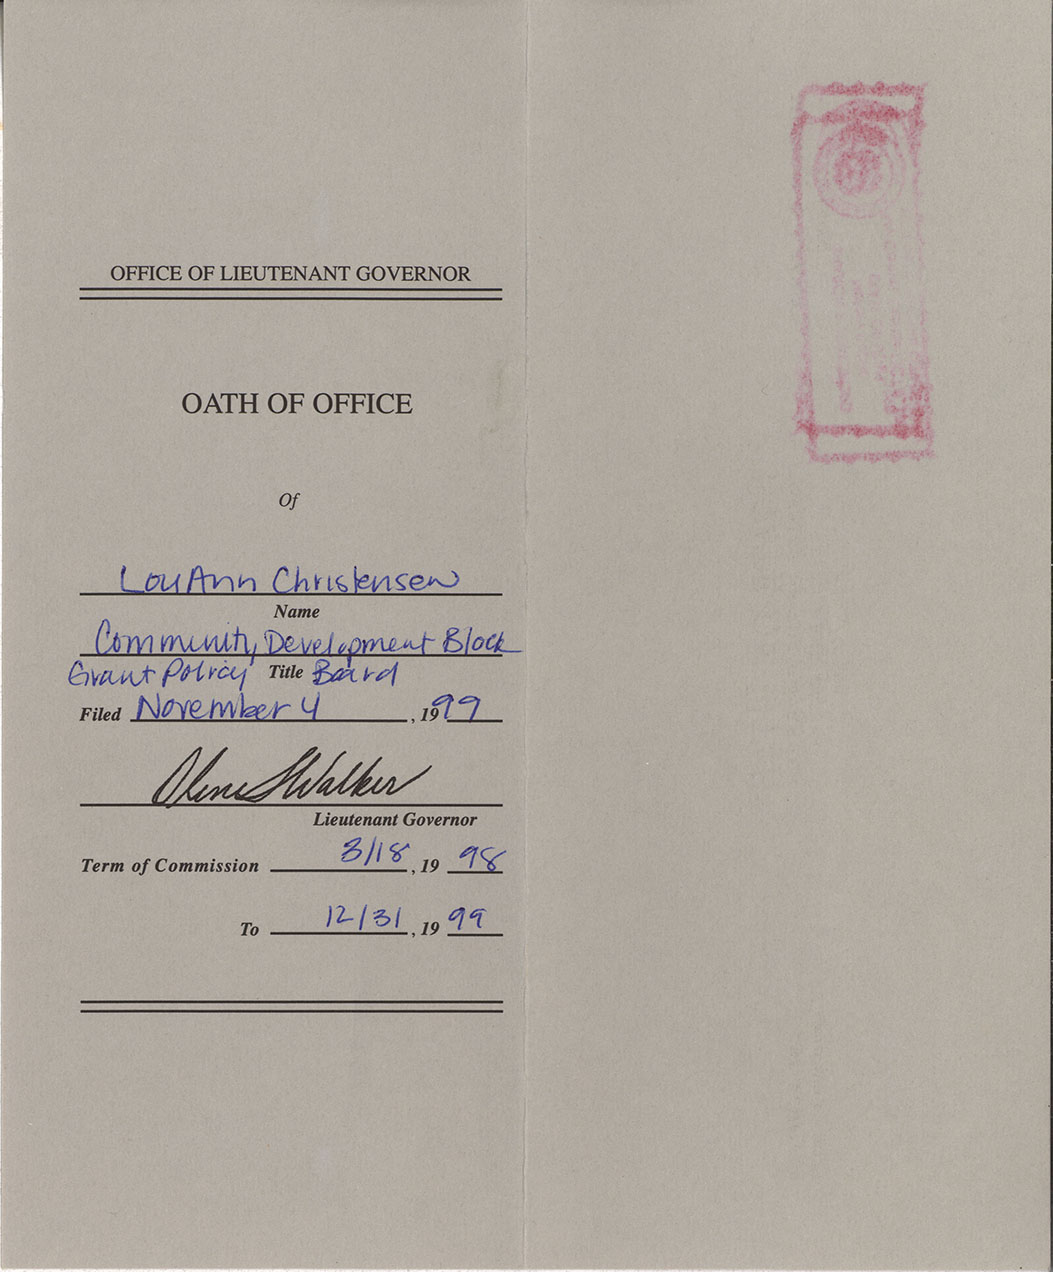 OFFICE OF LIEUTENANT GOVERNOR
OATH OF OFFICE
Of
LouAnn Christensen
Name
Community Development Block
Grant Policy Title Board
Filed November 4, 1999
Olene S Walker
Lieutenant Governor
Term of Commission 3/18, 19 98
To 12/31, 19 99